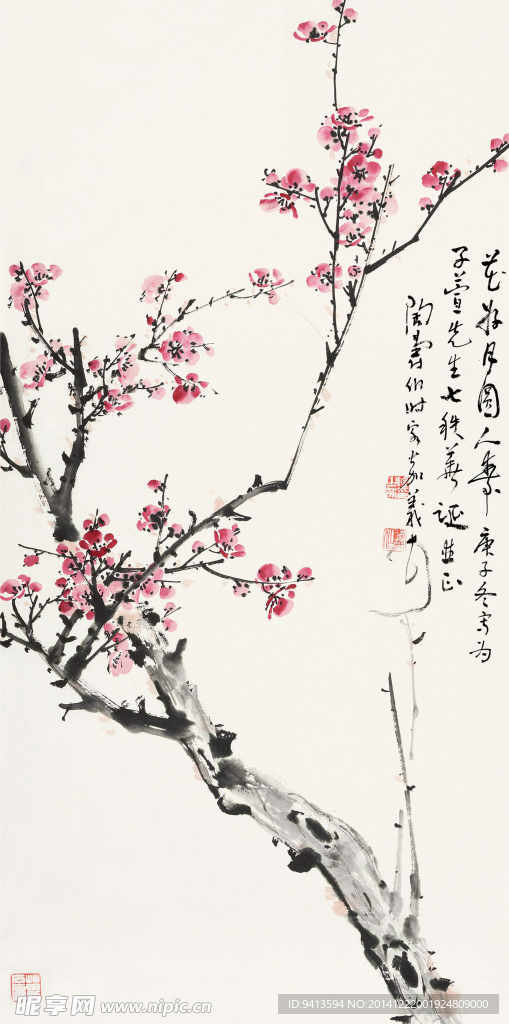 花好月圓人壽 庚子冬寫為
子萱先生七秩華誕並正
陶壽伯时客嘉義
昵享网 www.nipic.cn
ID:9413594 NO:20141222001924809000